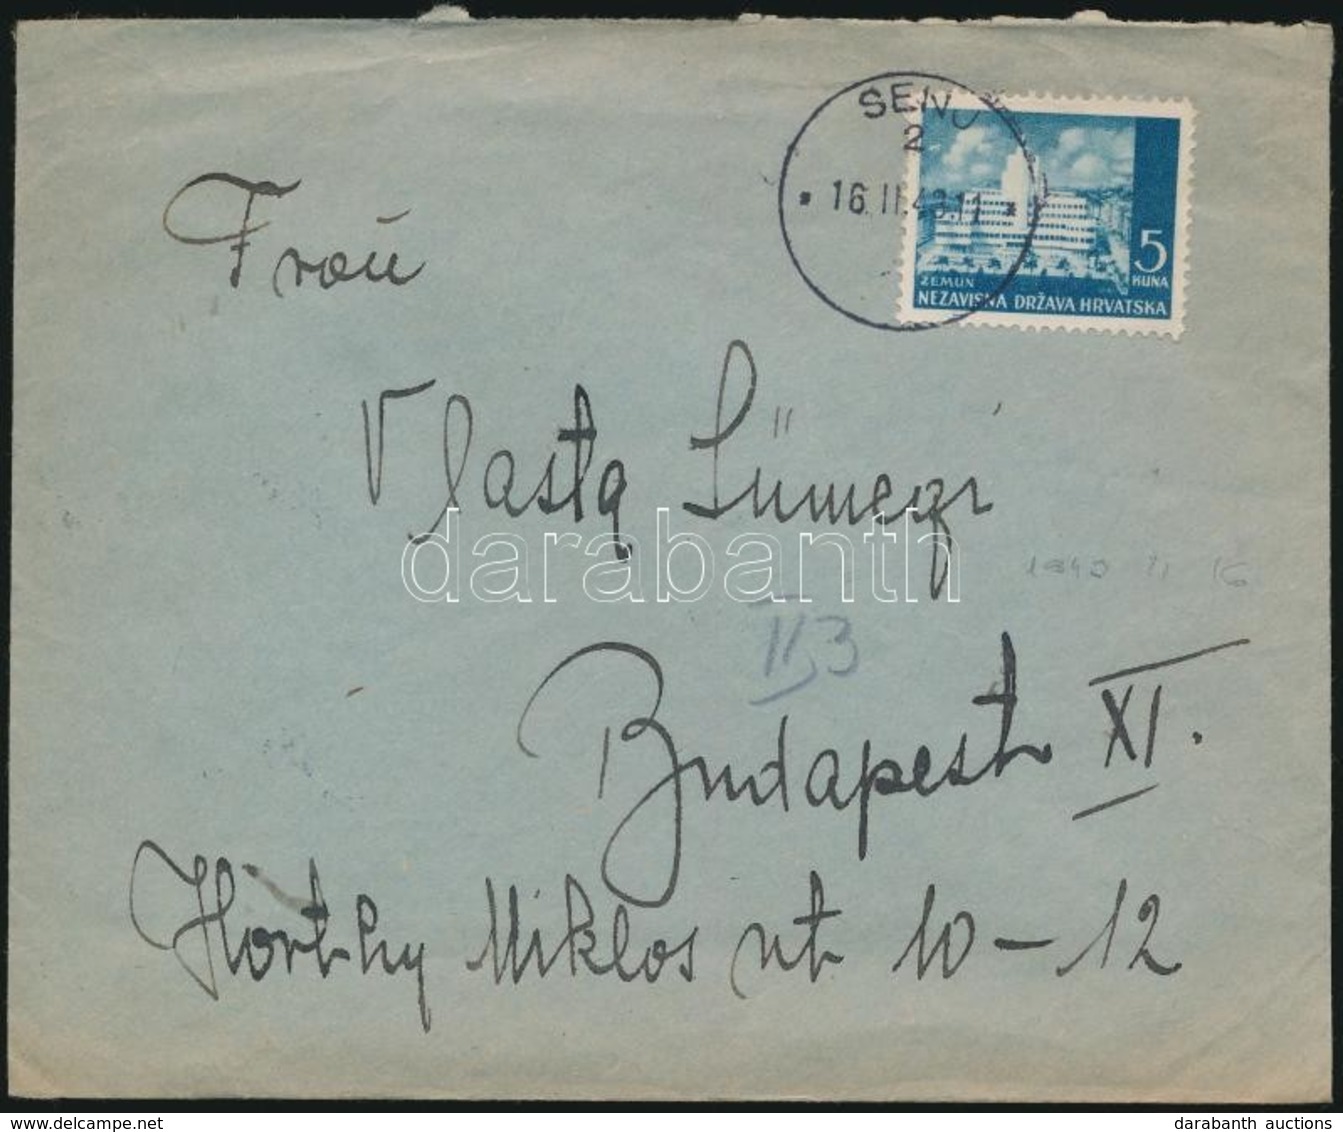 SENJ
2
* 16.II.43.11 *
ZEMUN
5
KUNA
NEZAVISNA DRŽAVA HRVATSKA
Frau
Vlasta Sümegi
darabanth
1943 II 16
II/3
Budapest XI.
Horthy Miklos ut 10-12
darabanth auctions